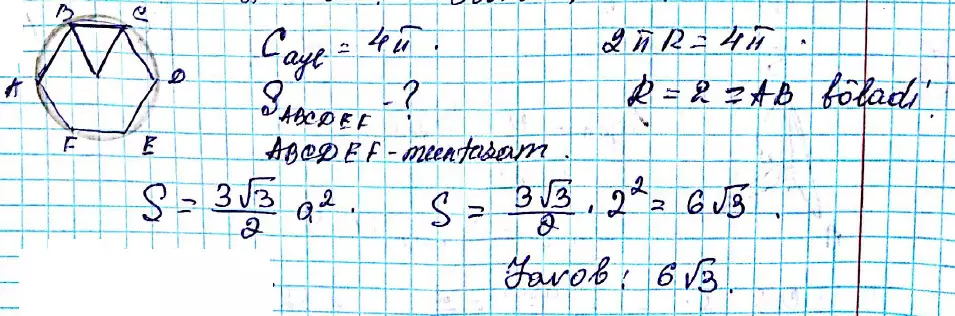 B C
A D
F E
C ayl = 4π. 2πR = 4π.
S ABCDEF - ? R = 2 = AB bōladi.
ABCDEF - muntazam.
S = 3√3/2 a². S = 3√3/2 · 2² = 6√3.
Javob: 6√3.